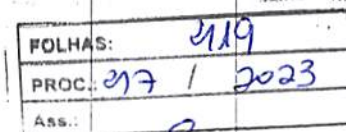 FOLHAS: 419
PROC.: 217 / 2023
Ass.: